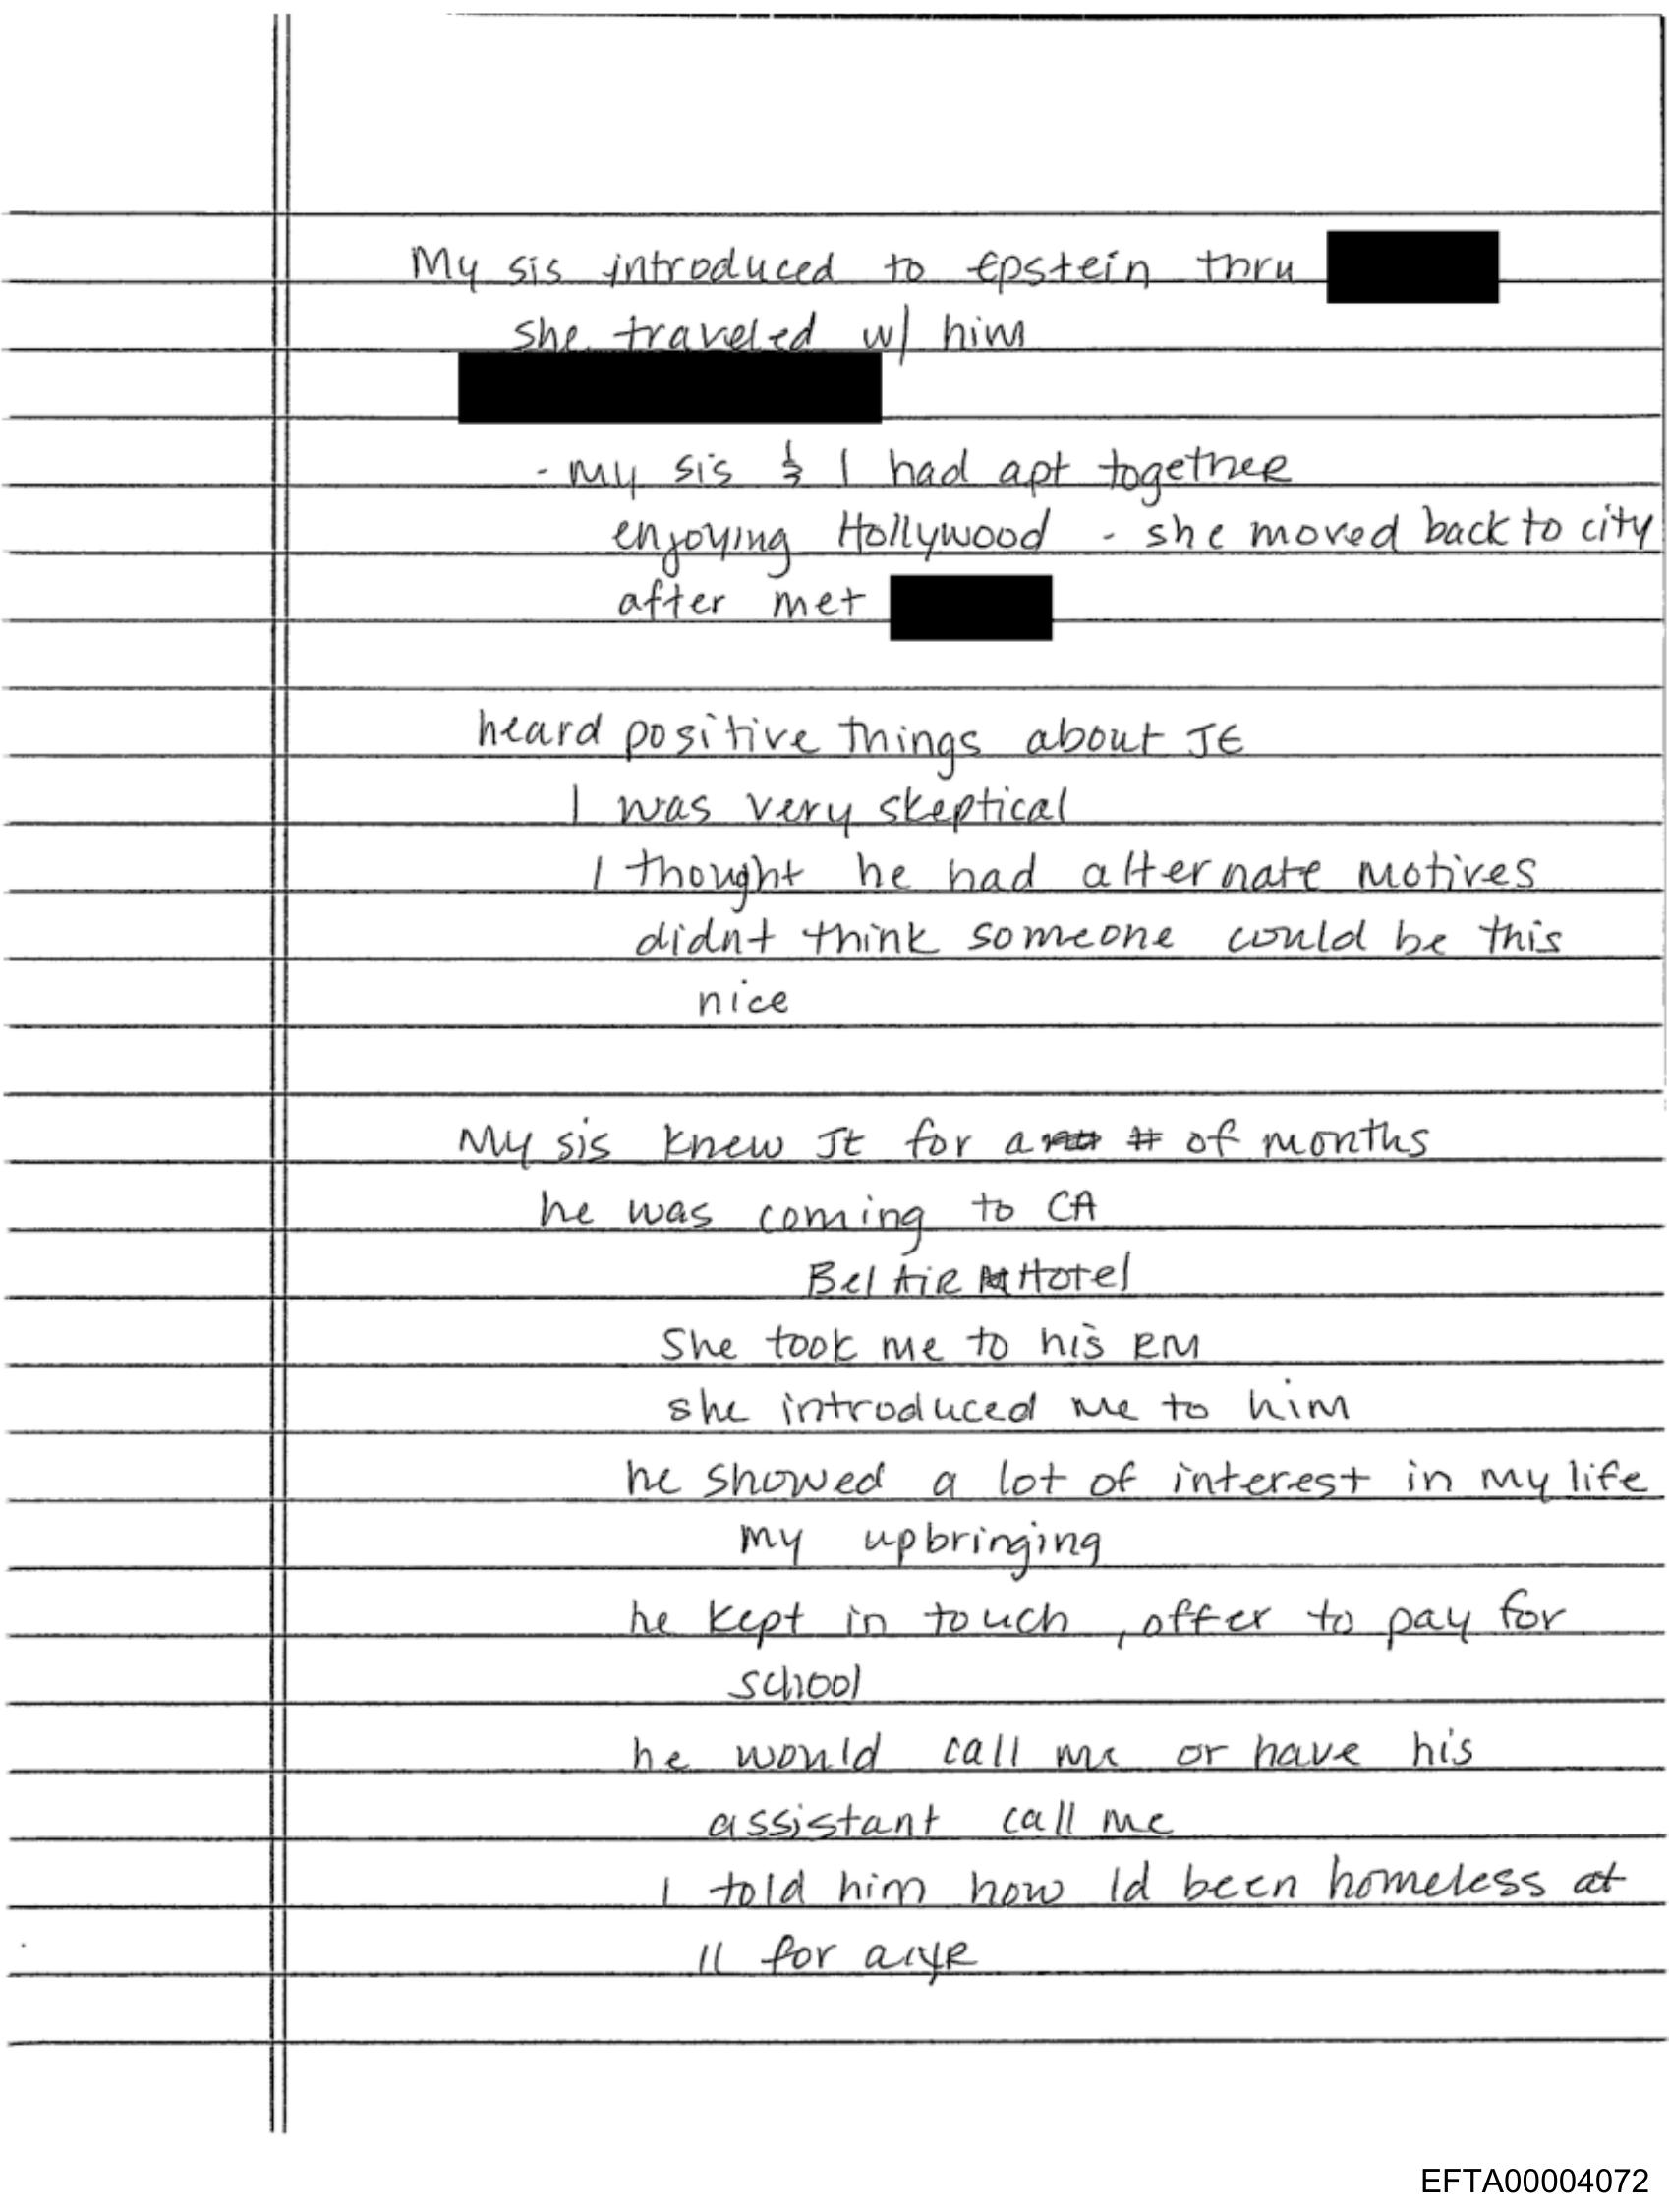 My sis introduced to Epstein thru
she traveled w/ him
- my sis & I had apt together
enjoying Hollywood - she moved back to city
after met
heard positive things about JE
I was very skeptical
I thought he had alternate motives
didnt think someone could be this
nice
My sis knew JE for a # of months
he was coming to CA
Bel AiR Hotel
She took me to his RM
she introduced me to him
he showed a lot of interest in my life
my upbringing
he kept in touch, offer to pay for
school
he would call me or have his
assistant call me
I told him how Id been homeless at
11 for a yR
EFTA00004072